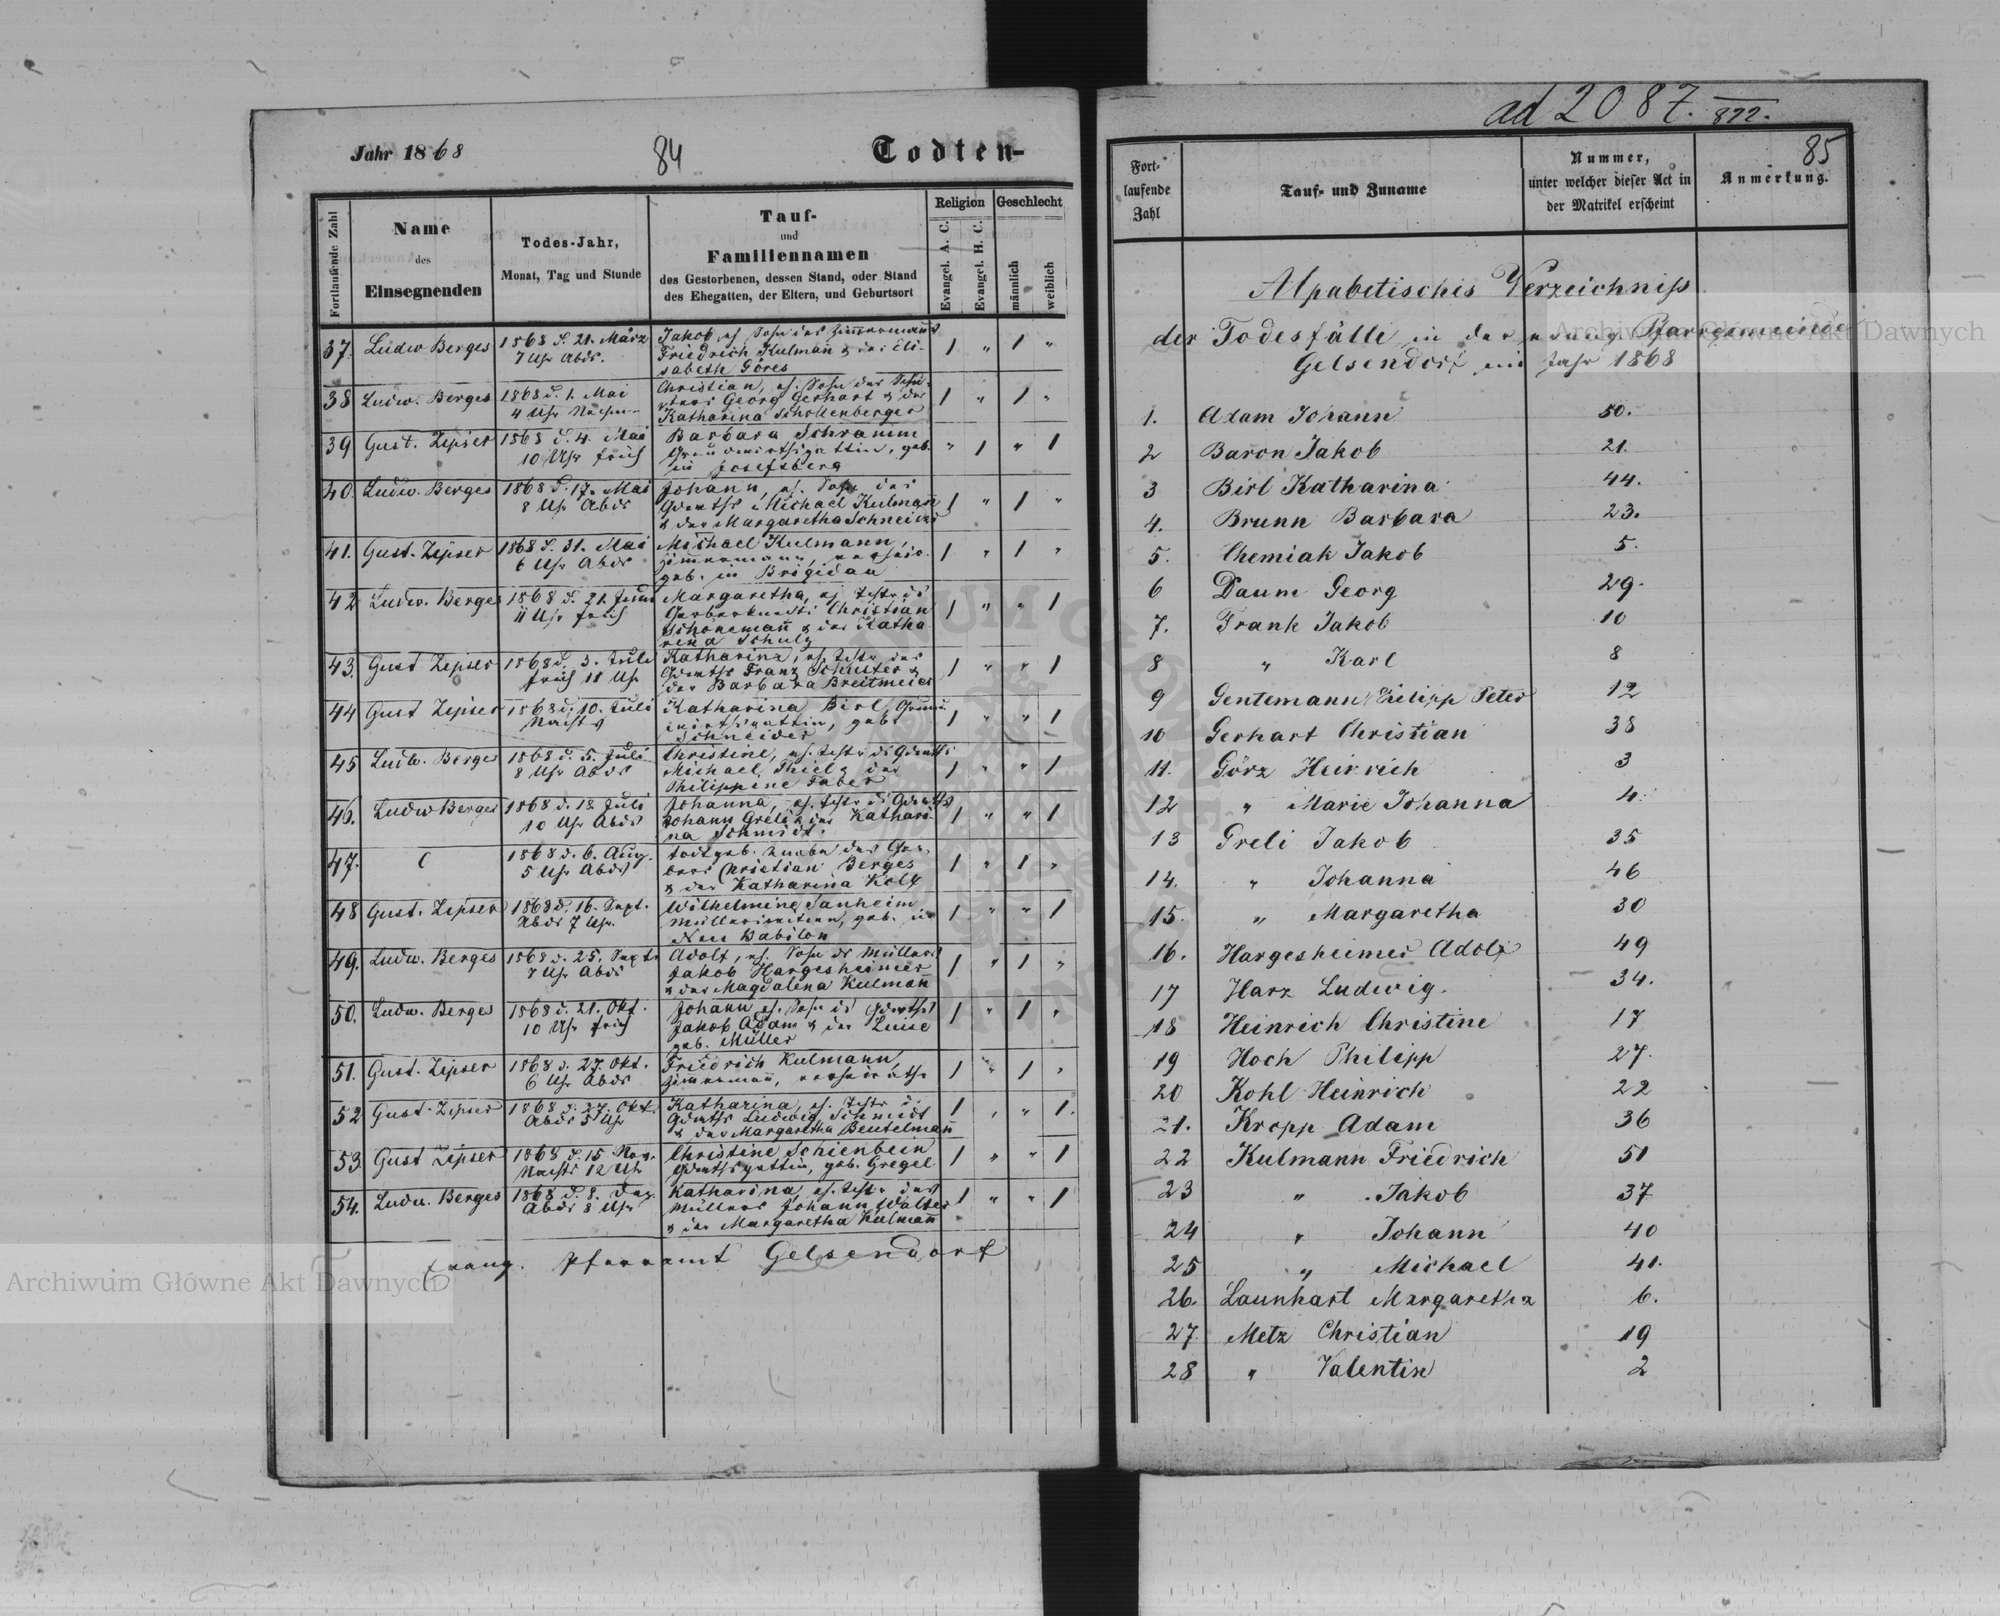 Jahr 1868
84
Todten-
Fortlaufende Zahl
Name
des
Einsegnenden
Todes-Jahr,
Monat, Tag und Stunde
Tauf-
und
Familiennamen
des Gestorbenen, dessen Stand, oder Stand
des Ehegatten, der Eltern, und Geburtsort
Religion
Geschlecht
Evangel. A. C.
Evangel. H. C.
männlich
weiblich
37. Ludw Berges 1868 d. 21. März Jakob, es. Sohn des Zimmermanns
7 Uhr Abds. Friedrich Kulmann & der Eli- 1 " 1 "
sabeth Göres
38 Ludw. Berges 1868 d. 1. Mai Christian, es. Sohn des
4 Uhr Nachm. Georg Gerhart & der 1 " 1 "
Katharina Schollenberger
39 Gust. Zipser 1868 d. 4. Mai Barbara Schramm
10 Uhr früh Grundwirthsgattin, geb. " 1 " 1
in Josefsberg
40. Ludw. Berges 1868 d. 17. Mai Johann, es. Sohn des
8 Uhr Abds Gdwths Michael Kulmann 1 " 1 "
& der Margaretha Schneider
41. Gust. Zipser 1868 d. 31. Mai Michael Kulmann,
6 Uhr Abds Zimmermann, 1 " 1 "
geb. in Brigidau
42 Ludw. Berges 1868 d. 21. Juni Margaretha, es Tochter d
11 Uhr früh Christian 1 " " 1
Schönemann & der Katha
rina Schulz
43. Gust Zipser 1868 d. 3. Juli Katharina, es. Tochtr des
früh 11 Uhr Gdwths Franz Schuster & 1 " " 1
der Barbara Breitmeier
44 Gust Zipser 1868 d. 10. Juli Katharina Birl, Grund
Nachts wirthsgattin, geb. 1 " " 1
Schneider
45 Ludw. Berges 1868 d. 5. Juli Christine, es. Tochtr ds Gdwths
8 Uhr Abds Michael Thiel & der 1 " " 1
Philippine Faber
46. Ludw Berges 1868 d. 18 Juli Johanna, es. Tochtr ds Gdwths
10 Uhr Abds Johann Greli & der Kathari- 1 " " 1
na Schmidt.
47. 1868 d. 6. Aug. todtgeb. Knabe des Ger-
5 Uhr Abds bers Christian Berges 1 " 1 "
& der Katharina Kolf
48 Gust. Zipser 1868 d. 16. Sept. Wilhelmine Sanheim
Abds 7 Uhr. geb. in 1 " " 1
Neu Babilon
49. Ludw. Berges 1868 d. 25. Septr Adolf, es. Sohn ds Müllers
7 Uhr Abds Jakob Hargesheimer 1 " 1 "
& der Magdalena Kulmann
50. Ludw. Berges 1868 d. 21. Okt. Johann es. Sohn ds Gdwths
10 Uhr früh Jakob Adam & der Luise 1 " 1 "
geb. Müller
51. Gust. Zipser 1868 d. 27. Okt. Friedrich Kulmann,
6 Uhr Abds Zimmermann, 1 " 1 "
52 Gust. Zipser 1868 d. 27. Okt. Katharina, es. Tochtr d.
Abds 5 Uhr Gdwths Ludwig Schmidt 1 " " 1.
& der Margaretha Beutelmann
53 Gust Zipser 1868 d. 15 Nov. Christine Schienbein
Nachts 12 Uhr Gdwthsgattin, geb. Gregel 1 " " 1
54. Ludw. Berges 1868 d. 8. Dez. Katharina, es. Tochtr des
Abds 8 Uhr Müllers Johann Walter 1 " " 1
& der Margaretha Kulmann
Evang. Pfarramt Gelsendorf
ad 2087. 872.
85
Fort-
laufende
Zahl
Tauf- und Zuname
Nummer,
unter welcher dieser Act in
der Matrikel erscheint
Anmerkung.
Alpabetisches Verzeichniss
der Todesfälle in der evang. Pfarrgemeinde
Gelsendorf im Jahr 1868
1. Adam Johann 50.
2 Baron Jakob 21.
3 Birl Katharina 44.
4. Brunn Barbara 23.
5. Chemiak Jakob 5.
6 Daum Georg 29.
7. Frank Jakob 10
8 " Karl 8
9 Gentemann Philipp Peter 12
10 Gerhart Christian 38
11. Görz Heinrich 3
12 " Marie Johanna 4.
13 Greli Jakob 35
14. " Johanna 46
15. " Margaretha 30
16. Hargesheimer Adolf 49
17 Harz Ludwig. 34.
18 Heinrich Christine 17
19 Hoch Philipp 27.
20 Kohl Heinrich 22
21. Kropp Adam 36
22 Kulmann Friedrich 51
23 " Jakob 37
24 " Johann 40
25 " Michael 41.
26. Launhart Margaretha 6.
27. Metz Christian 19
28 " Valentin 2
Archiwum Główne Akt Dawnych
Archiwum Główne Akt Dawnych